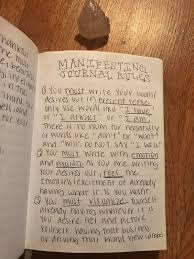 MANIFESTING
JOURNAL RULES
① YOU MUST WRITE YOUR GOALS/
DESIRES OUT IN PRESENT TENSE
ONLY USE WORDS LIKE "I HAVE"
OR "I ATTRACT" OR "I AM"
THERE IS NO ROOM FOR NEGATIVITY
OR WORDS LIKE "DON'T" OR "WON'T"
AND "WILL". DO NOT SAY "I WILL"
② YOU MUST WRITE WITH EMOTION
AND AS YOU ARE WRITING
YOUR DESIRES OUT, FEEL THE
EMOTIONS/EXCITEMENT OF ALREADY
HAVING WHAT IT IS YOU WANT.
③ YOU MUST VISUALIZE YOURSELF
ALREADY HAVING WHATEVER IT IS
YOU DESIRE. FEEL AND PICTURE
YOURSELF HAVING THAT BUSINESS
OR DRIVING THAT BRAND NEW